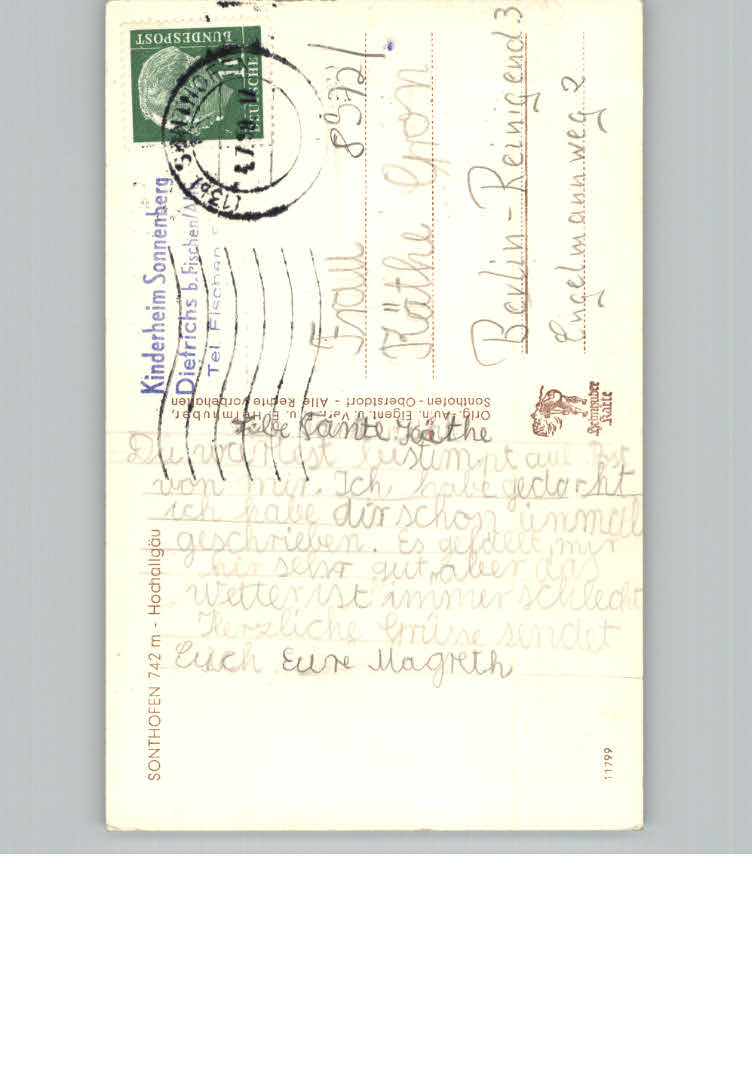 Liebe Tante Käthe
Du wartest bestimpt auf Post
von mir. Ich habe gedacht
ich habe dir schon einmal
geschrieben. Es gefällt mir
hir sehr gut, aber das
Wetter ist immer schlecht
Herzliche Grüsse sendet
Euch Eure Magreth
Frau
Käthe Gron
Berlin-Reinigend 3
Engelmannweg 2
8972/
Kinderheim Sonnenberg
Dietrichs b. Fischen/A
Tel. Fischen
DEUTSCHE
BUNDESPOST
10
(13b) SONTHOFEN
SONTHOFEN 742 m - Hochallgäu
Orig.-Aufn. Eigent. u. Verl. F. u. E. Heimhuber,
Sonthofen - Oberstdorf - Alle Rechte vorbehalten
Heimhuber
Karte
11799